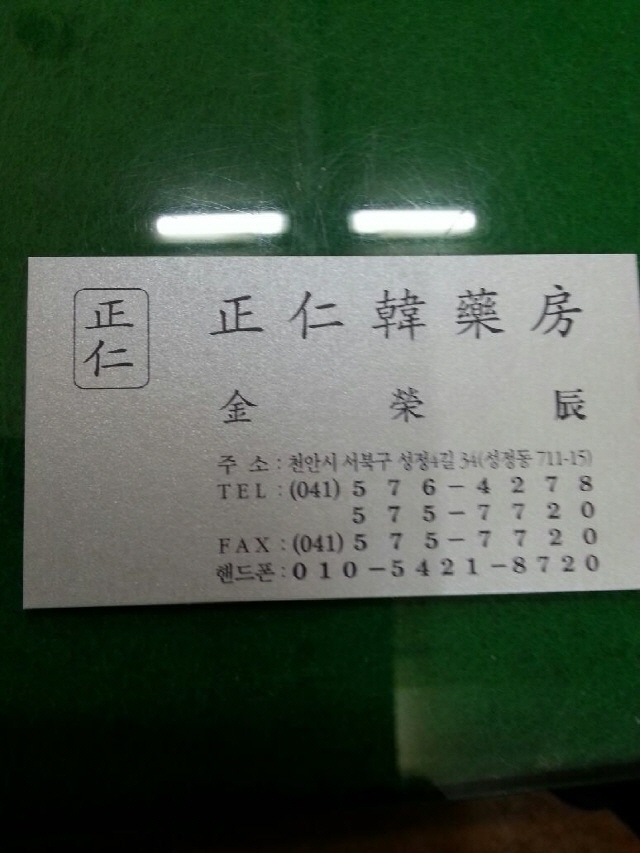 正
仁
正仁韓藥房
金榮辰
주 소 : 천안시 서북구 성정4길 34(성정동 711-15)
TEL : (041) 576-4278
575-7720
FAX : (041) 575-7720
핸드폰 : 010-5421-8720